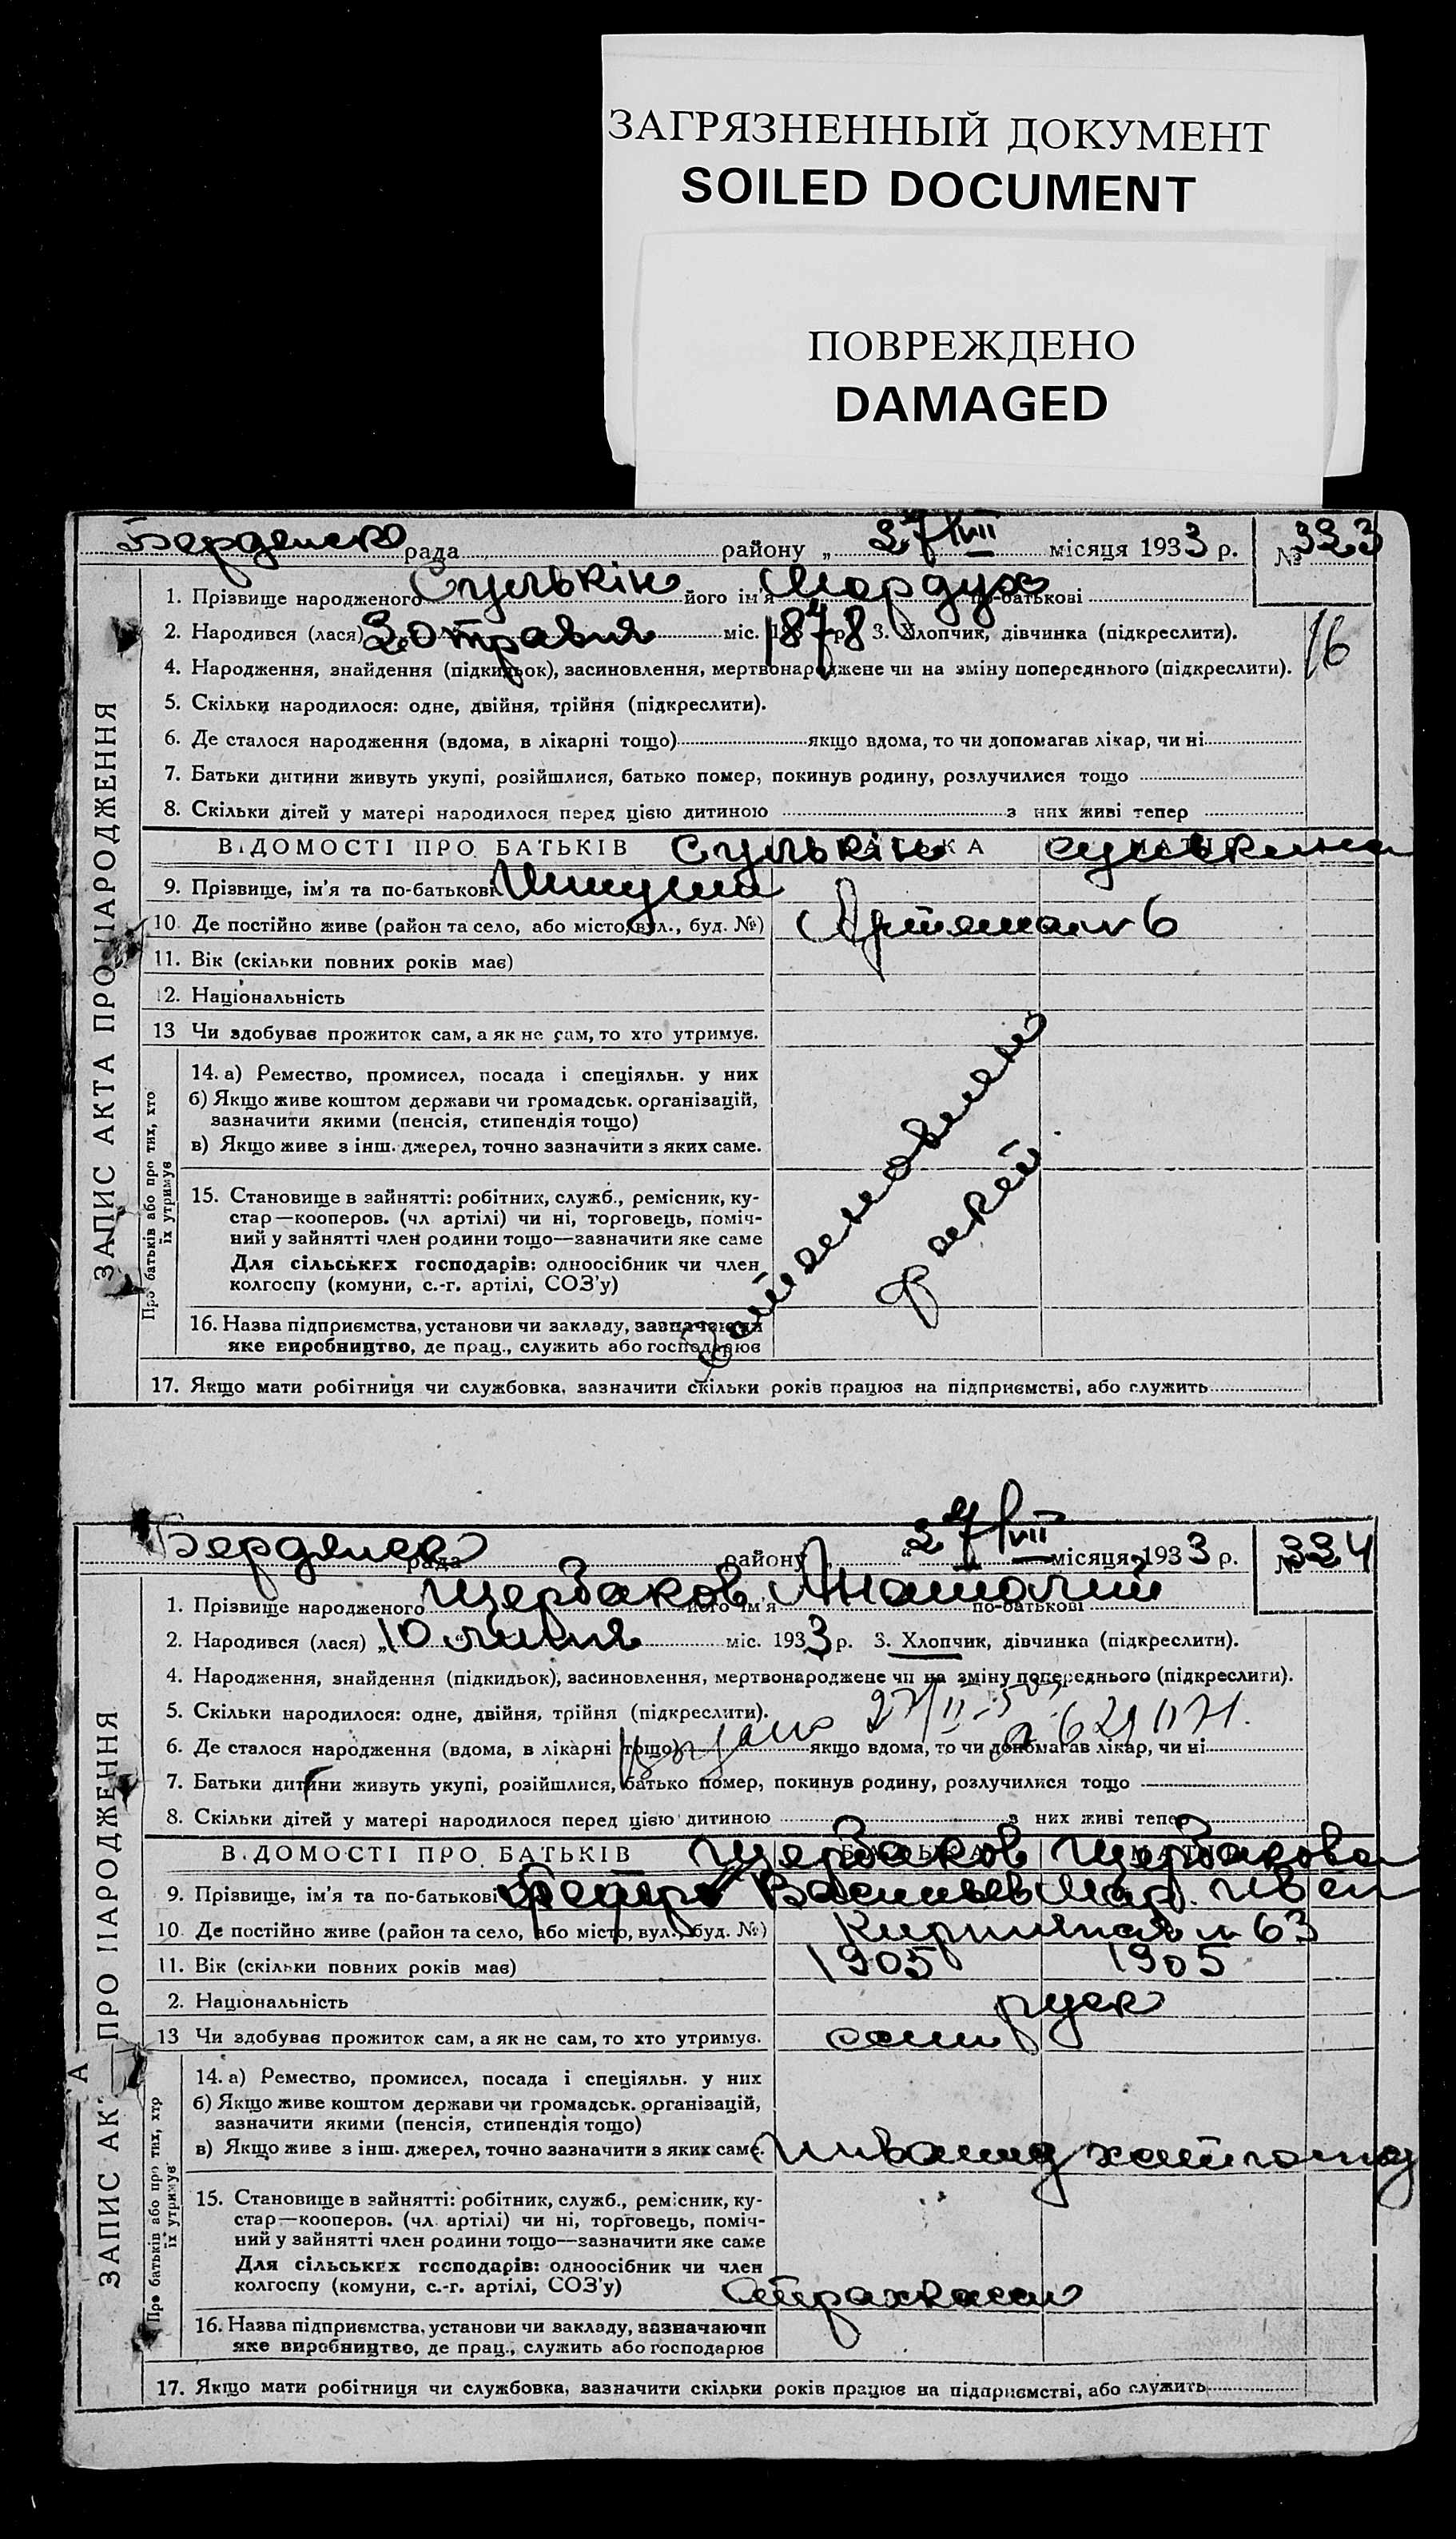 ЗАГРЯЗНЕННЫЙ ДОКУМЕНТ
SOILED DOCUMENT
ПОВРЕЖДЕНО
DAMAGED
Бердянск рада району „ 27/VII місяця 1933 р. № 323
1. Прізвище народженого Сулькін його ім'я Мордух по-батькові
2. Народився (лася) 30 травня міс. 1878 р. 3. Хлопчик, дівчинка (підкреслити).
16
4. Народження, знайдення (підкидьок), засиновлення, мертвонароджене чи на зміну попереднього (підкреслити).
5. Скільки народилося: одне, двійня, трійня (підкреслити).
6. Де сталося народження (вдома, в лікарні тощо) якщо вдома, то чи допомагав лікар, чи ні
7. Батьки дитини живуть укупі, розійшлися, батько помер, покинув родину, розлучилися тощо
8. Скільки дітей у матері народилося перед цією дитиною з них живі тепер
ВІДОМОСТІ ПРО БАТЬКІВ Сулькін Сулькина
9. Прізвище, ім'я та по-батькові
10. Де постійно живе (район та село, або місто, вул., буд. №) 6
11. Вік (скільки повних років має)
12. Національність
13 Чи здобуває прожиток сам, а як не сам, то хто утримує.
14. а) Ремество, промисел, посада і спеціяльн. у них
б) Якщо живе коштом держави чи громадськ. організацій,
зазначити якими (пенсія, стипендія тощо)
в) Якщо живе з інш. джерел, точно зазначити з яких саме.
15. Становище в зайнятті: робітник, служб., ремісник, ку-
стар—кооперов. (чл артілі) чи ні, торговець, поміч-
ний у зайнятті член родини тощо—зазначити яке саме
Для сільських господарів: одноосібник чи член
колгоспу (комуни, с.-г. артілі, СОЗ'у)
16. Назва підприємства, установи чи закладу, зазначаючи
яке виробництво, де прац., служить або господарює
17. Якщо мати робітниця чи службовка, зазначити скільки років працює на підприємстві, або служить
ЗАПИС АКТА ПРО НАРОДЖЕННЯ
Про батьків або про тих, хто
їх утримує
Бердянск рада району „ 27/VII місяця 1933 р. № 324
1. Прізвище народженого Щербаков його ім'я Анатолий по-батькові
2. Народився (лася) „10 липня міс. 1933 р. 3. Хлопчик, дівчинка (підкреслити).
4. Народження, знайдення (підкидьок), засиновлення, мертвонароджене чи на зміну попереднього (підкреслити).
5. Скільки народилося: одне, двійня, трійня (підкреслити).
6. Де сталося народження (вдома, в лікарні тощо) якщо вдома, то чи допомагав лікар, чи ні
7. Батьки дитини живуть укупі, розійшлися, батько помер, покинув родину, розлучилися тощо
8. Скільки дітей у матері народилося перед цією дитиною з них живі тепер
ВІДОМОСТІ ПРО БАТЬКІВ Щербаков Щербакова
9. Прізвище, ім'я та по-батькові Васильев Мар. Иван
10. Де постійно живе (район та село, або місто, вул., буд. №) 63
11. Вік (скільки повних років має) 1905 1905
2. Національність руск
13 Чи здобуває прожиток сам, а як не сам, то хто утримує. сам
14. а) Ремество, промисел, посада і спеціяльн. у них
б) Якщо живе коштом держави чи громадськ. організацій,
зазначити якими (пенсія, стипендія тощо)
в) Якщо живе з інш. джерел, точно зазначити з яких саме.
15. Становище в зайнятті: робітник, служб., ремісник, ку-
стар—кооперов. (чл. артілі) чи ні, торговець, поміч-
ний у зайнятті член родини тощо—зазначити яке саме
Для сільських господарів: одноосібник чи член
колгоспу (комуни, с.-г. артілі, СОЗ'у)
16. Назва підприємства, установи чи закладу, зазначаючи
яке виробництво, де прац., служить або господарює
17. Якщо мати робітниця чи службовка, зазначити скільки років працює на підприємстві, або служить
ЗАПИС АКТА ПРО НАРОДЖЕННЯ
Про батьків або про тих, хто
їх утримує